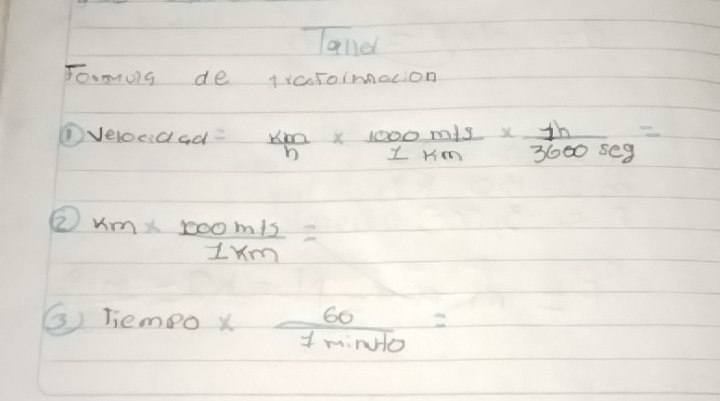 Taller
Formula de trasformacion
① Velocidad = Km/h x 1000 m/s / 1 Km x 1h / 3600 seg =
② Km x 1000 m/s / 1 Km =
③ Tiempo x 60 / 1 minuto =